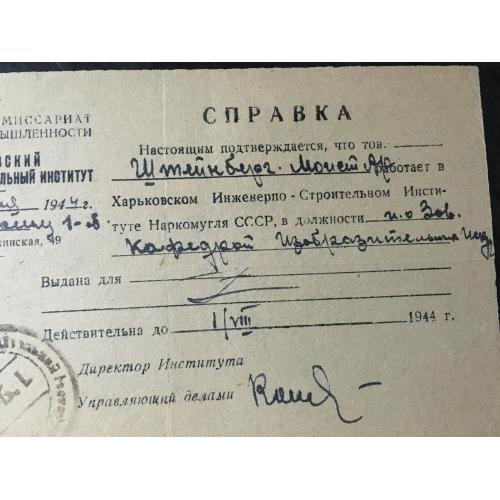 МИССАРИАТ
ЫШЛЕННОСТИ
ВСКИЙ
ЛЬНЫЙ ИНСТИТУТ
1944 г.
1-й
инская, 49
СПРАВКА
Настоящим подтверждается, что тов.
Штейнберг Моисей работает в
Харьковском Инженерно-Строительном Инсти-
туте Наркомугля СССР, в должности и.о Зав.
Кафедрой Изобразительных Иску
Выдана для
Действительна до 1/VIII 1944 г.
Директор Института
Управляющий делами